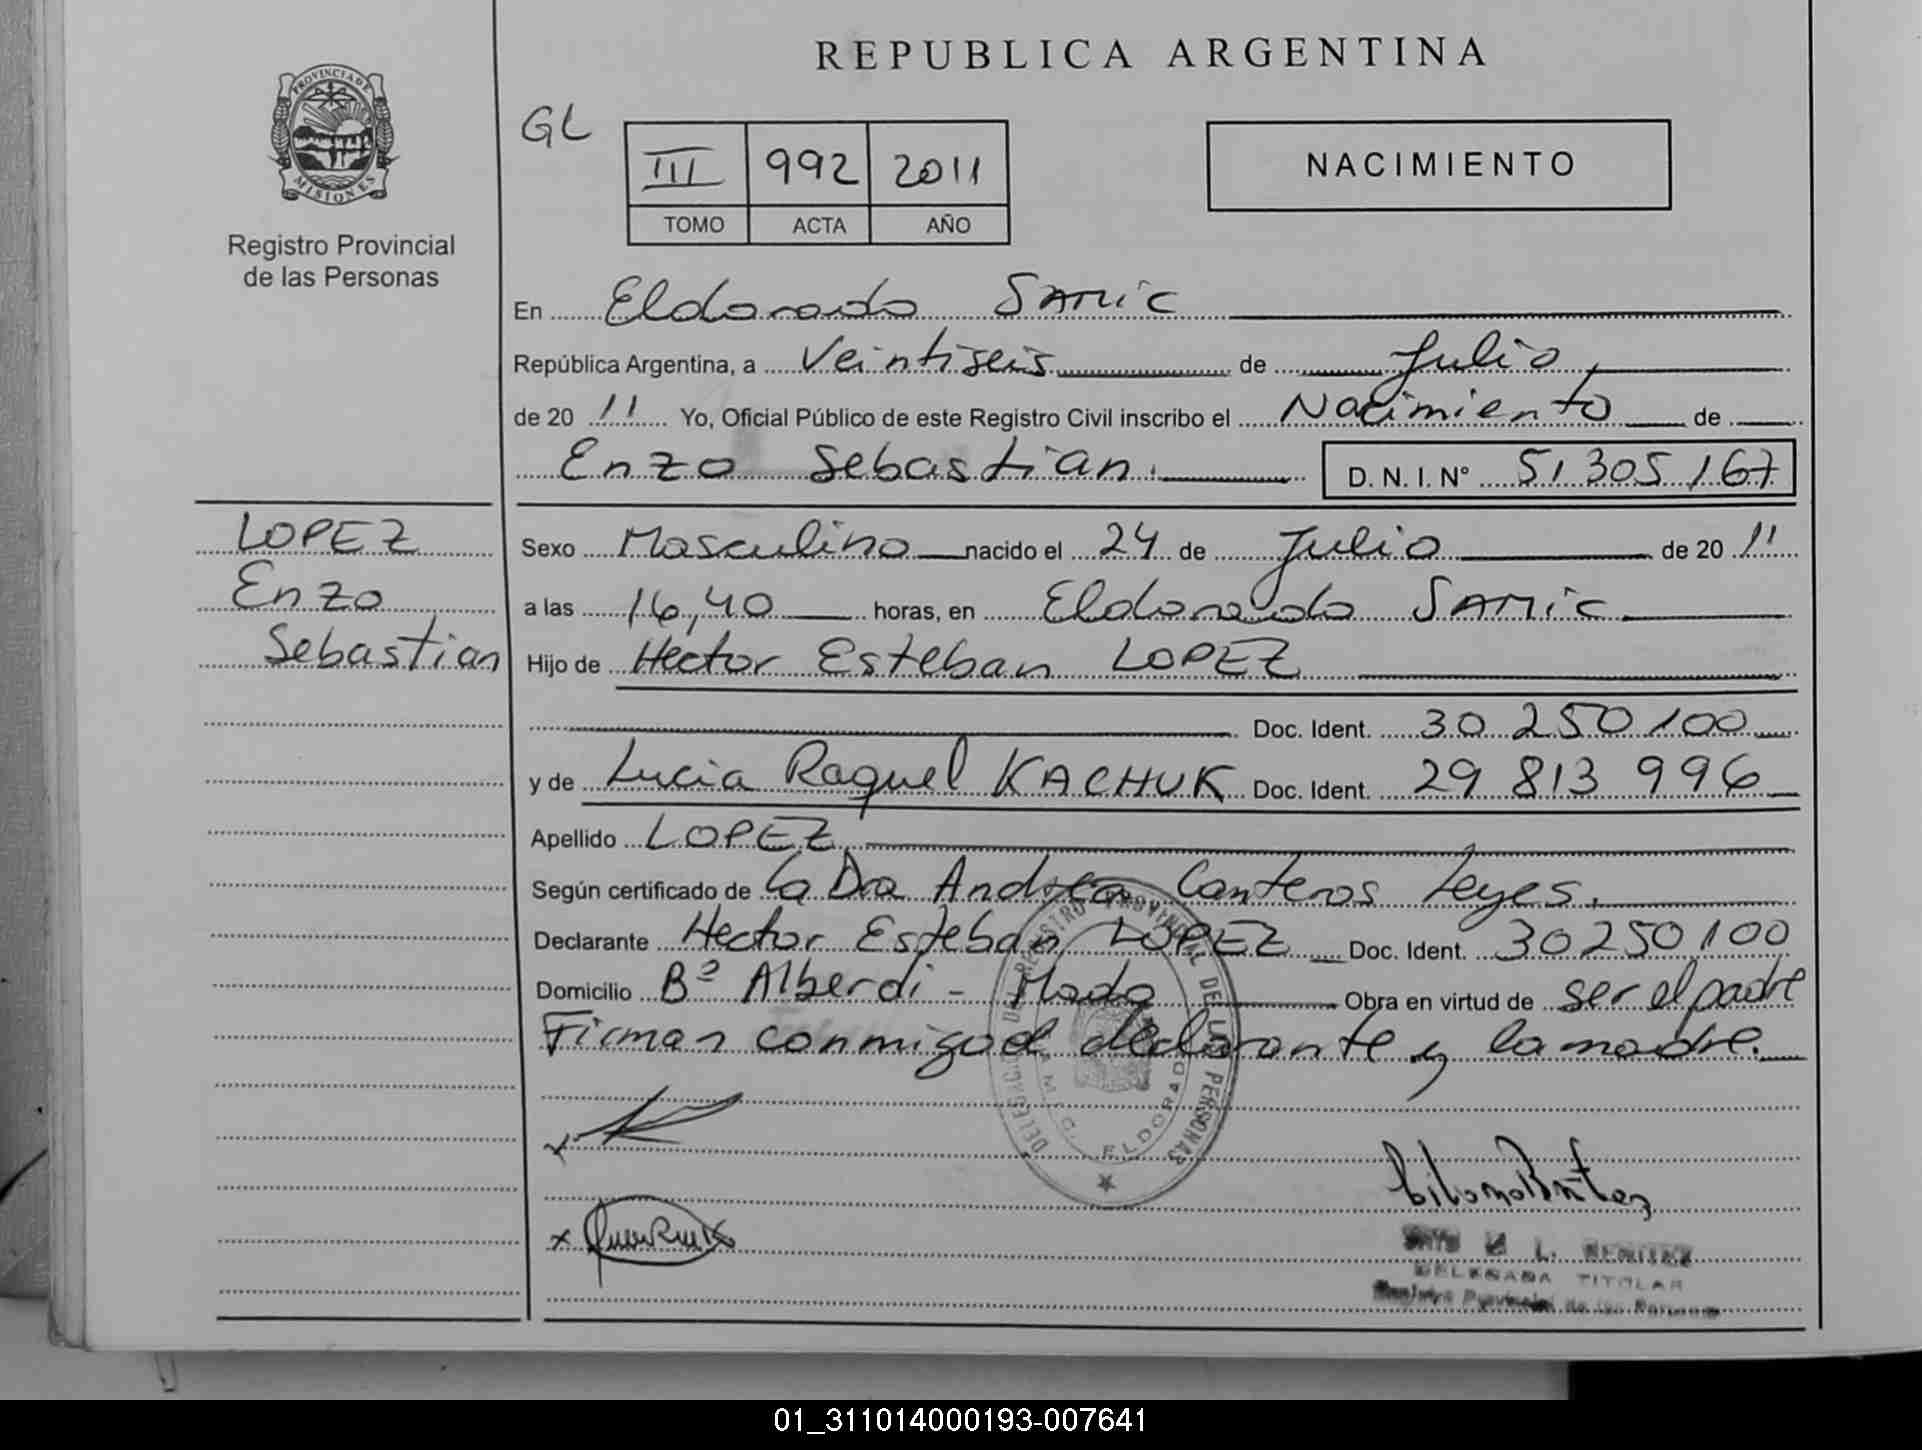 REPUBLICA ARGENTINA
PROVINCIA DE
MISIONES
Registro Provincial
de las Personas
GL
III 992 2011
TOMO ACTA AÑO
NACIMIENTO
En Eldorado SAMIC
República Argentina, a Veintiseis de Julio
de 20 11 Yo, Oficial Público de este Registro Civil inscribo el Nacimiento de
Enzo Sebastian. D. N. I. N° 51 305 167
LOPEZ
Enzo
Sebastian
Sexo Masculino nacido el 24 de Julio de 20 11
a las 16,40 horas, en Eldorado SAMIC
Hijo de Hector Esteban LOPEZ
Doc. Ident. 30 250 100
y de Lucia Raquel KACHUK Doc. Ident. 29 813 996
Apellido LOPEZ
Según certificado de la Dra Andrea Canteros Leyes.
Declarante Hector Esteban LOPEZ Doc. Ident. 30250100
Domicilio Bº Alberdi - Mado Obra en virtud de ser el padre
Firman conmigo el declarante y la madre.
DELEGACION DEL REGISTRO PROVINCIAL DE LAS PERSONAS
ELDORADO
L. BENITEZ
DELEGADA TITULAR
Registro Provincial de las Personas
01_311014000193-007641